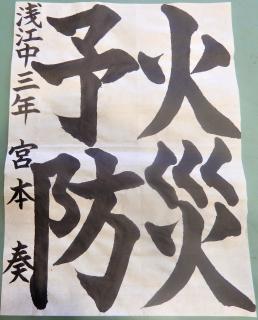 火災
予防
浅江中三年 宮本 奏